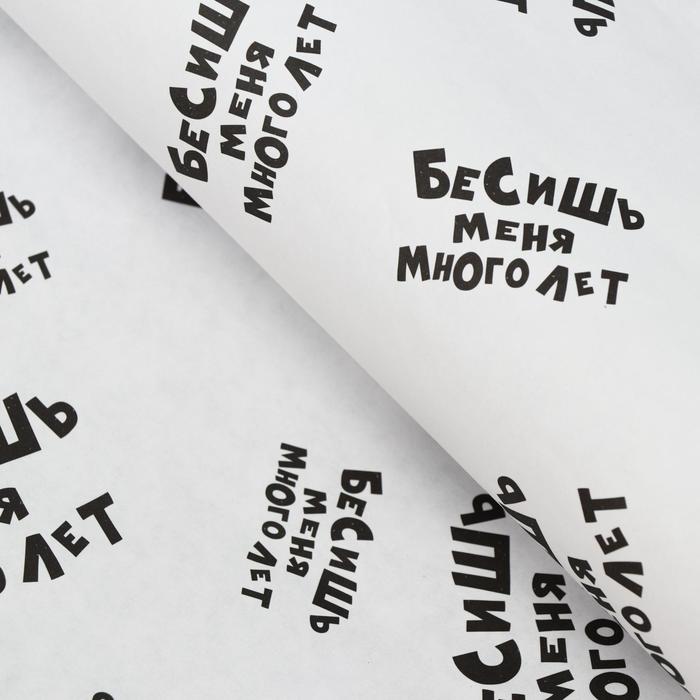 БеСиШь
меня
много лет
БеСиШь
меня
много лет
шь
лет
Шь
я
лет
БеСиШь
меня
много лет
еСиШь
меня
много лет